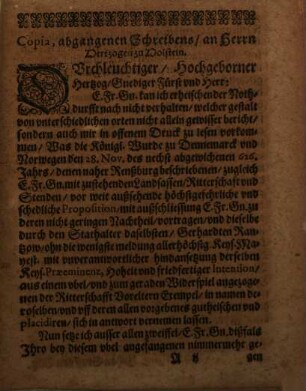 Copia, abgangenen Schreibens/ an Herrn
Hertzogen zu Holstein.
DUrchleuchtiger/ Hochgeborner
Hertzog/ Gnediger Fürst vnd Herr:
E. Fr. Gn. kan ich erheischender Noth-
durfft nach nicht verhalten/ welcher gestalt
von vnterschiedlichen orten nicht allein gewisser bericht/
sondern auch mir in offenem Druck zu lesen vorkom-
men/ Was die Königl. Wurde zu Dennemarck vnd
Norwegen den 28. Nov. des nechst abgewichenen 626.
Jahrs/ denen naher Renßburg beschriebenen/ zugleich
E. Fr. Gn. mit zustehenden Landsassen/ Ritterschafft vnd
Stenden/ vor weit aussehende höchstgefehrliche vnd
schedliche Proposition/ mit ausschliessung E. Fr. Gn. zu
deren nicht geringen Nachtheil/ vortragen/ vnd dieselbe
durch den Stathalter daselbsten/ Gerhardten Rant-
zow/ ohn die wenigste meldung allerhöchstg. Keys. May-
est. mit vnverantwortlicher hindansetzung derselben
Keys. Præeminentz, Hoheit vnd friedfertiger Intention/
aus einem vbel/ vnd zum geraden Widerspiel angezoge-
nen der Ritterschafft Voreltern Exempel/ in namen de-
roselben/ vnd vff deren allen vorgebenes gutheischen vnd
placidiren/ sich in antwort vernemen lassen.
Nun setze ich ausser allen zweiffel/ E. Fr. Gn. dißfals
Ihro bey diesem vbel angefangenen nimmermehr ge-
A ij